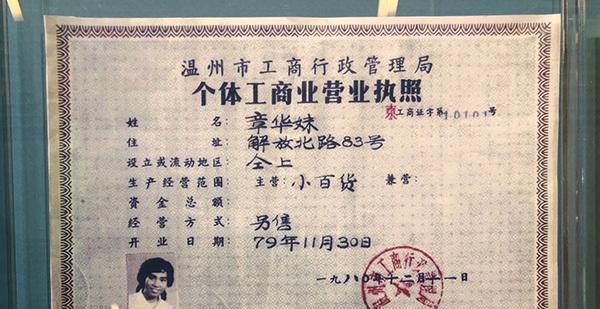 温州市工商行政管理局
个体工商业营业执照
东工商证字第10101号
姓 名: 章华妹
住 址: 解放北路83号
设立或流动地区: 仝上
生产经营范围: 主营: 小百货 兼营:
资金总额:
经营方式: 另售
开业日期: 79年11月30日
一九八〇年十二月十一日
温州市工商行政管理局